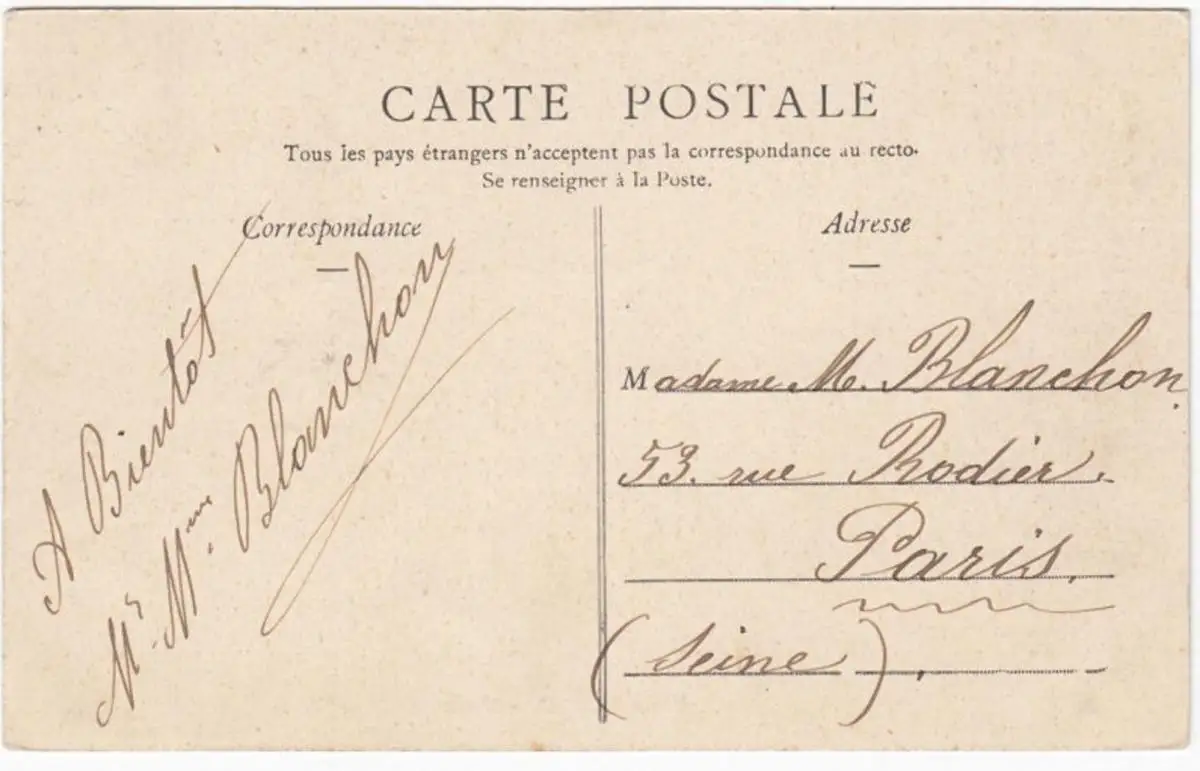 CARTE POSTALE
Tous les pays étrangers n'acceptent pas la correspondance au recto.
Se renseigner à la Poste.
Correspondance
A Bientôt
Mr. Mme. Blanchon
Adresse
Madame M. Blanchon
53. rue Rodier.
Paris.
(Seine).